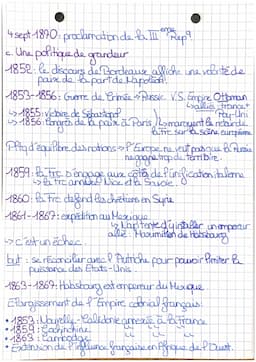 4 sept. 1870: proclamation de la III ème Rép
c. Une politique de grandeur
1852: le discours de Bordeaux affiche une volonté de
paix de la part de Napoléon.
1853-1856: Guerre de Crimée → Russie V.S. Empire Ottoman
↳ alliés France +
Roy-Uni
↳ 1855: victoire de Sébastopol
↳ 1856: Congrès de la paix à Paris / ↳ marquent le retour de
la Frc sur la scène européenne
Ppe d'équilibre des nations → l'Europe ne veut pas que la Russie
ne gagne trop de territoire.
1859: la Frc s'engage aux côtés de l'unification italienne
↳ la Frc annexe Nice et la Savoie.
1860: la Frc défend les chrétiens en Syrie
1861-1867: expédition au Mexique
↳ Nap tente d'y installer un empereur
allié: Maximilien de Habsbourg
→ c'est un échec.
but: se réconcilier avec l'Autriche pour pouvoir limiter la
puissance des États-Unis.
1863-1867: Habsbourg est empereur du Mexique
Élargissement de l'Empire colonial français:
• 1853: Nouvelle-Calédonie annexée à la France
• 1859: Cochinchine
• 1863: Cambodge
• Extension de l'influence française en Afrique de l'Ouest.